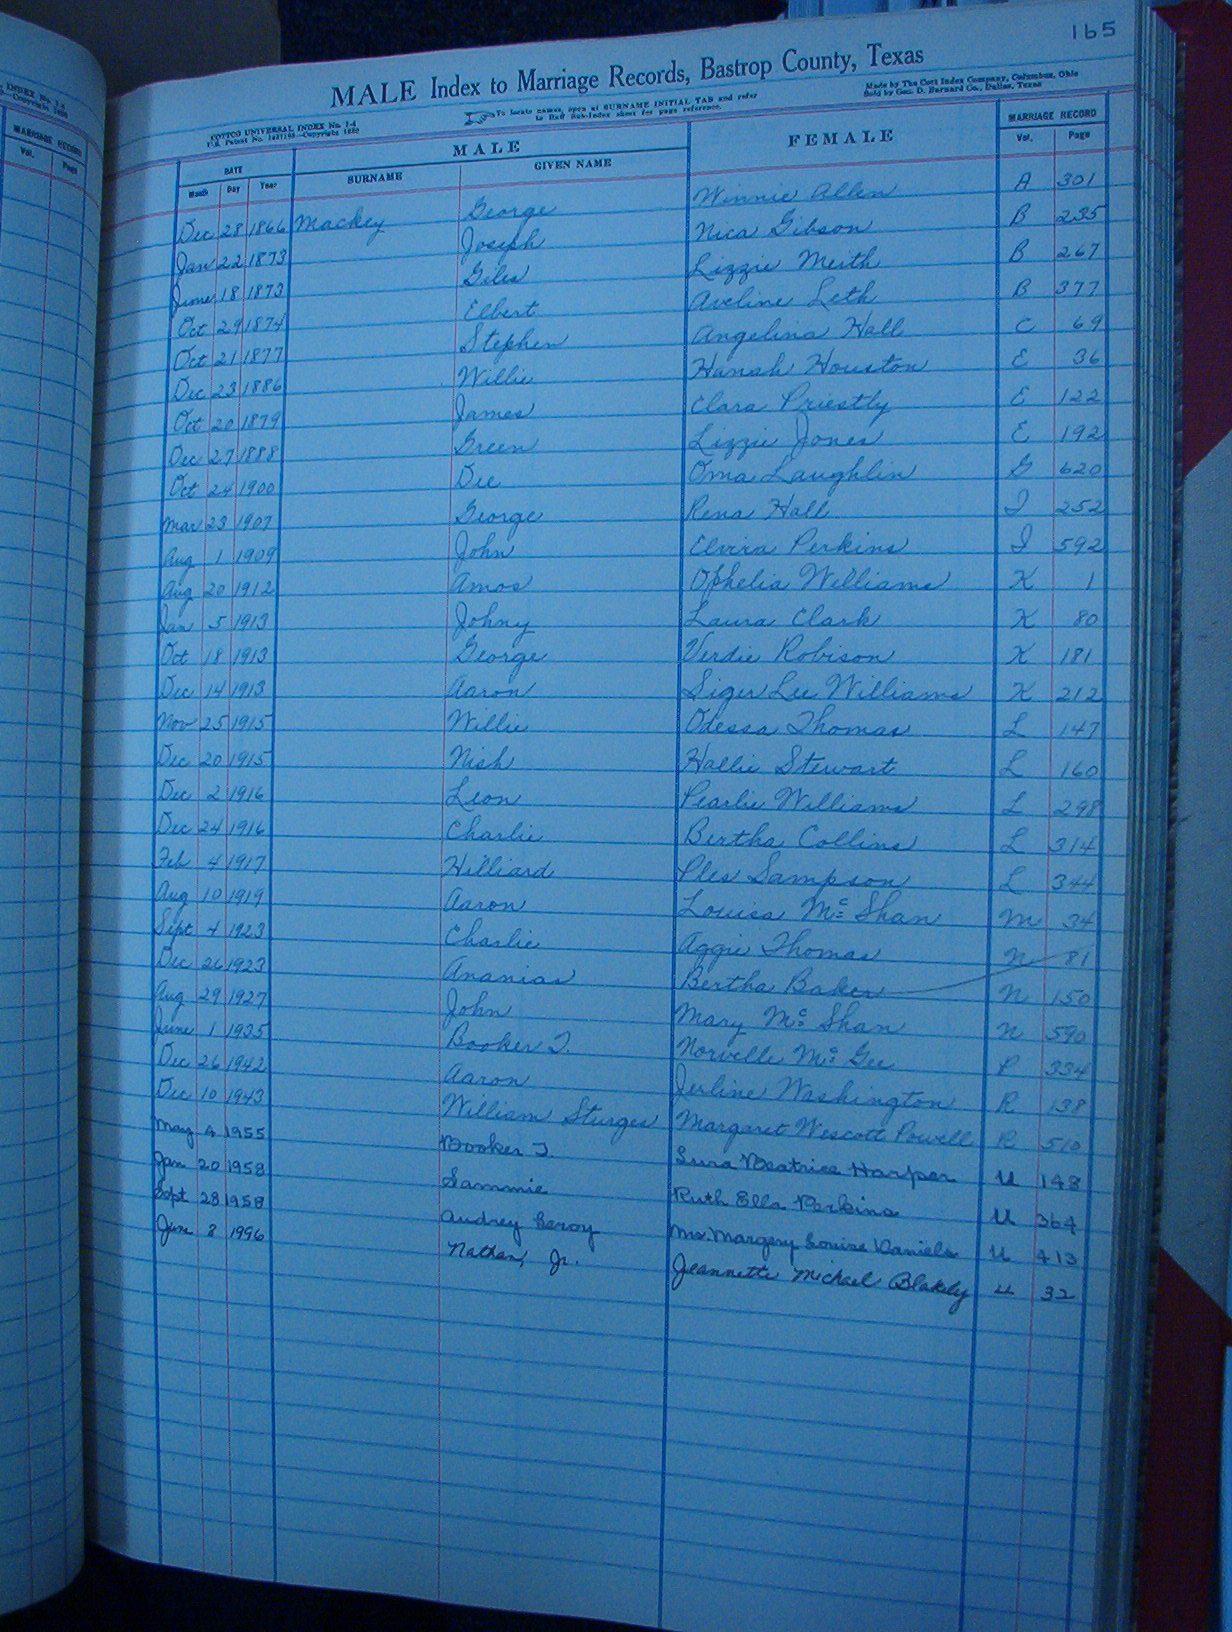 165
MALE Index to Marriage Records, Bastrop County, Texas
COTTCO UNIVERSAL INDEX No. 1-4
To locate names, open at SURNAME INITIAL TAB and refer
to Buff Sub-Index sheet for page reference.
Made by The Cott Index Company, Columbus, Ohio
Sold by Geo. D. Barnard Co., Dallas, Texas
MARRIAGE RECORD
Vol. Page
DATE MALE FEMALE MARRIAGE RECORD
Month Day Year SURNAME GIVEN NAME Vol. Page
Dec 28 1866 Mackey George Winnie Allen A 301
Jan 22 1873 Joseph Nica Gibson B 235
June 18 1873 Giles Lizzie Meith B 267
Oct 29 1874 Elbert Aveline Leth B 377
Oct 21 1877 Stephen Angelina Hall C 69
Dec 23 1886 Willie Hanah Houston E 36
Oct 20 1879 James Clara Priestly E 122
Dec 27 1888 Green Lizzie Jones E 192
Oct 24 1900 Dee Oma Laughlin G 620
Mar 23 1907 George Rena Hall I 252
Aug 1 1909 John Elvira Perkins I 592
Aug 20 1912 Amos Ophelia Williams K 1
Jan 5 1913 Johny Laura Clark K 80
Oct 18 1913 George Verdie Robison K 181
Dec 14 1913 Aaron Siger Lee Williams K 212
Nov 25 1915 Willie Odessa Thomas L 147
Dec 20 1915 Nish Hallie Stewart L 160
Dec 2 1916 Leon Pearlie Williams L 298
Dec 24 1916 Charlie Bertha Collins L 314
Feb 4 1917 Hilliard Ples Sampson L 344
Aug 10 1919 Aaron Louisa Mc Shan M 34
Sept 4 1923 Charlie Aggie Thomas N 81
Dec 26 1923 Ananias Bertha Baker N 150
Aug 29 1927 John Mary Mc Shan N 590
June 1 1935 Booker T. Norvelle Mc Gee P 334
Dec 26 1942 Aaron Jerline Washington R 138
Dec 10 1943 William Sturges Margaret Wescott Powell R 510
May 4 1955 Booker T. Lura Beatrice Harper U 148
Jan 20 1958 Sammie Ruth Ella Perkins U 364
Sept 28 1958 Audrey Leroy Mrs. Margery Louise Daniels U 413
June 8 1996 Nathan, Jr. Jeannette Michael Blakely U 32